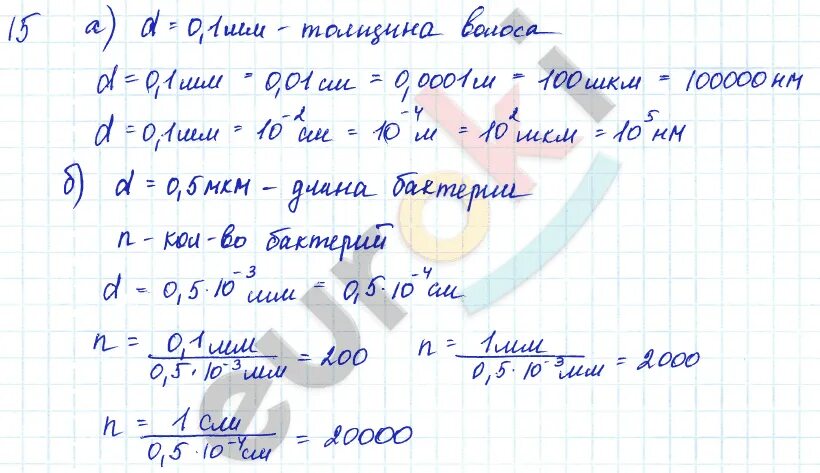 15 а) d = 0,1 мм - толщина волоса
d = 0,1 мм = 0,01 см = 0,0001 м = 100 мкм = 100000 нм
d = 0,1 мм = 10⁻² см = 10⁻⁴ м = 10² мкм = 10⁵ нм
б) d = 0,5 мкм - длина бактерии
n - кол-во бактерий
d = 0,5·10⁻³ мм = 0,5·10⁻⁴ см
n = 0,1 мм / 0,5·10⁻³ мм = 200 n = 1 мм / 0,5·10⁻³ мм = 2000
n = 1 см / 0,5·10⁻⁴ см = 20000
euroki